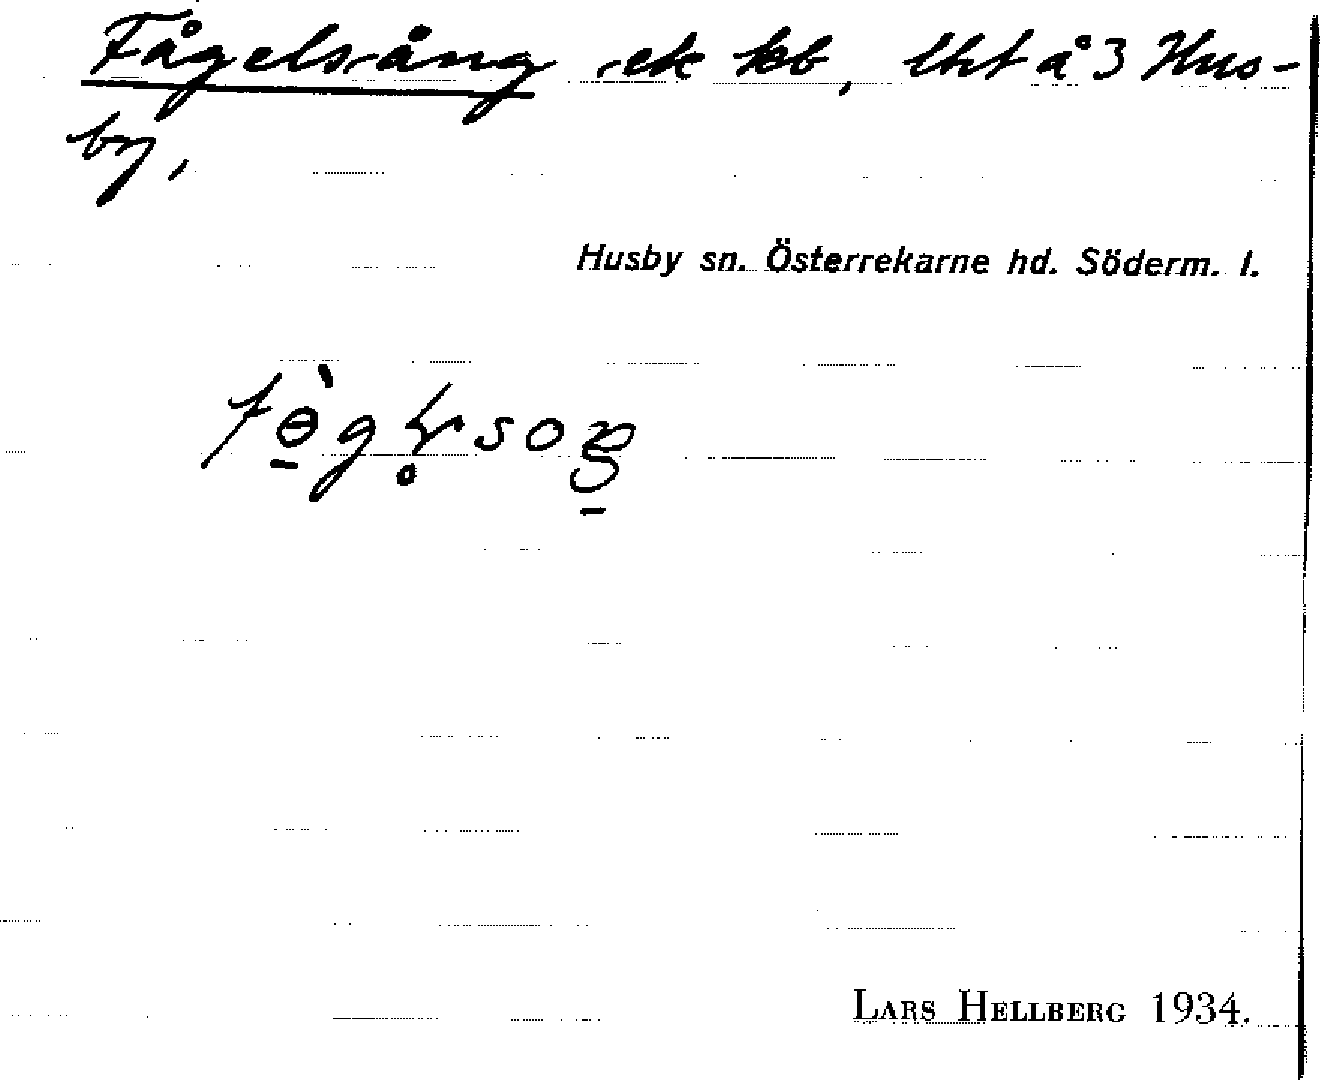 Fågelsång ek kb, lht å 3 Hus-
by,
Husby sn. Österrekarne hd. Söderm. l.
LARS HELLBERG 1934.